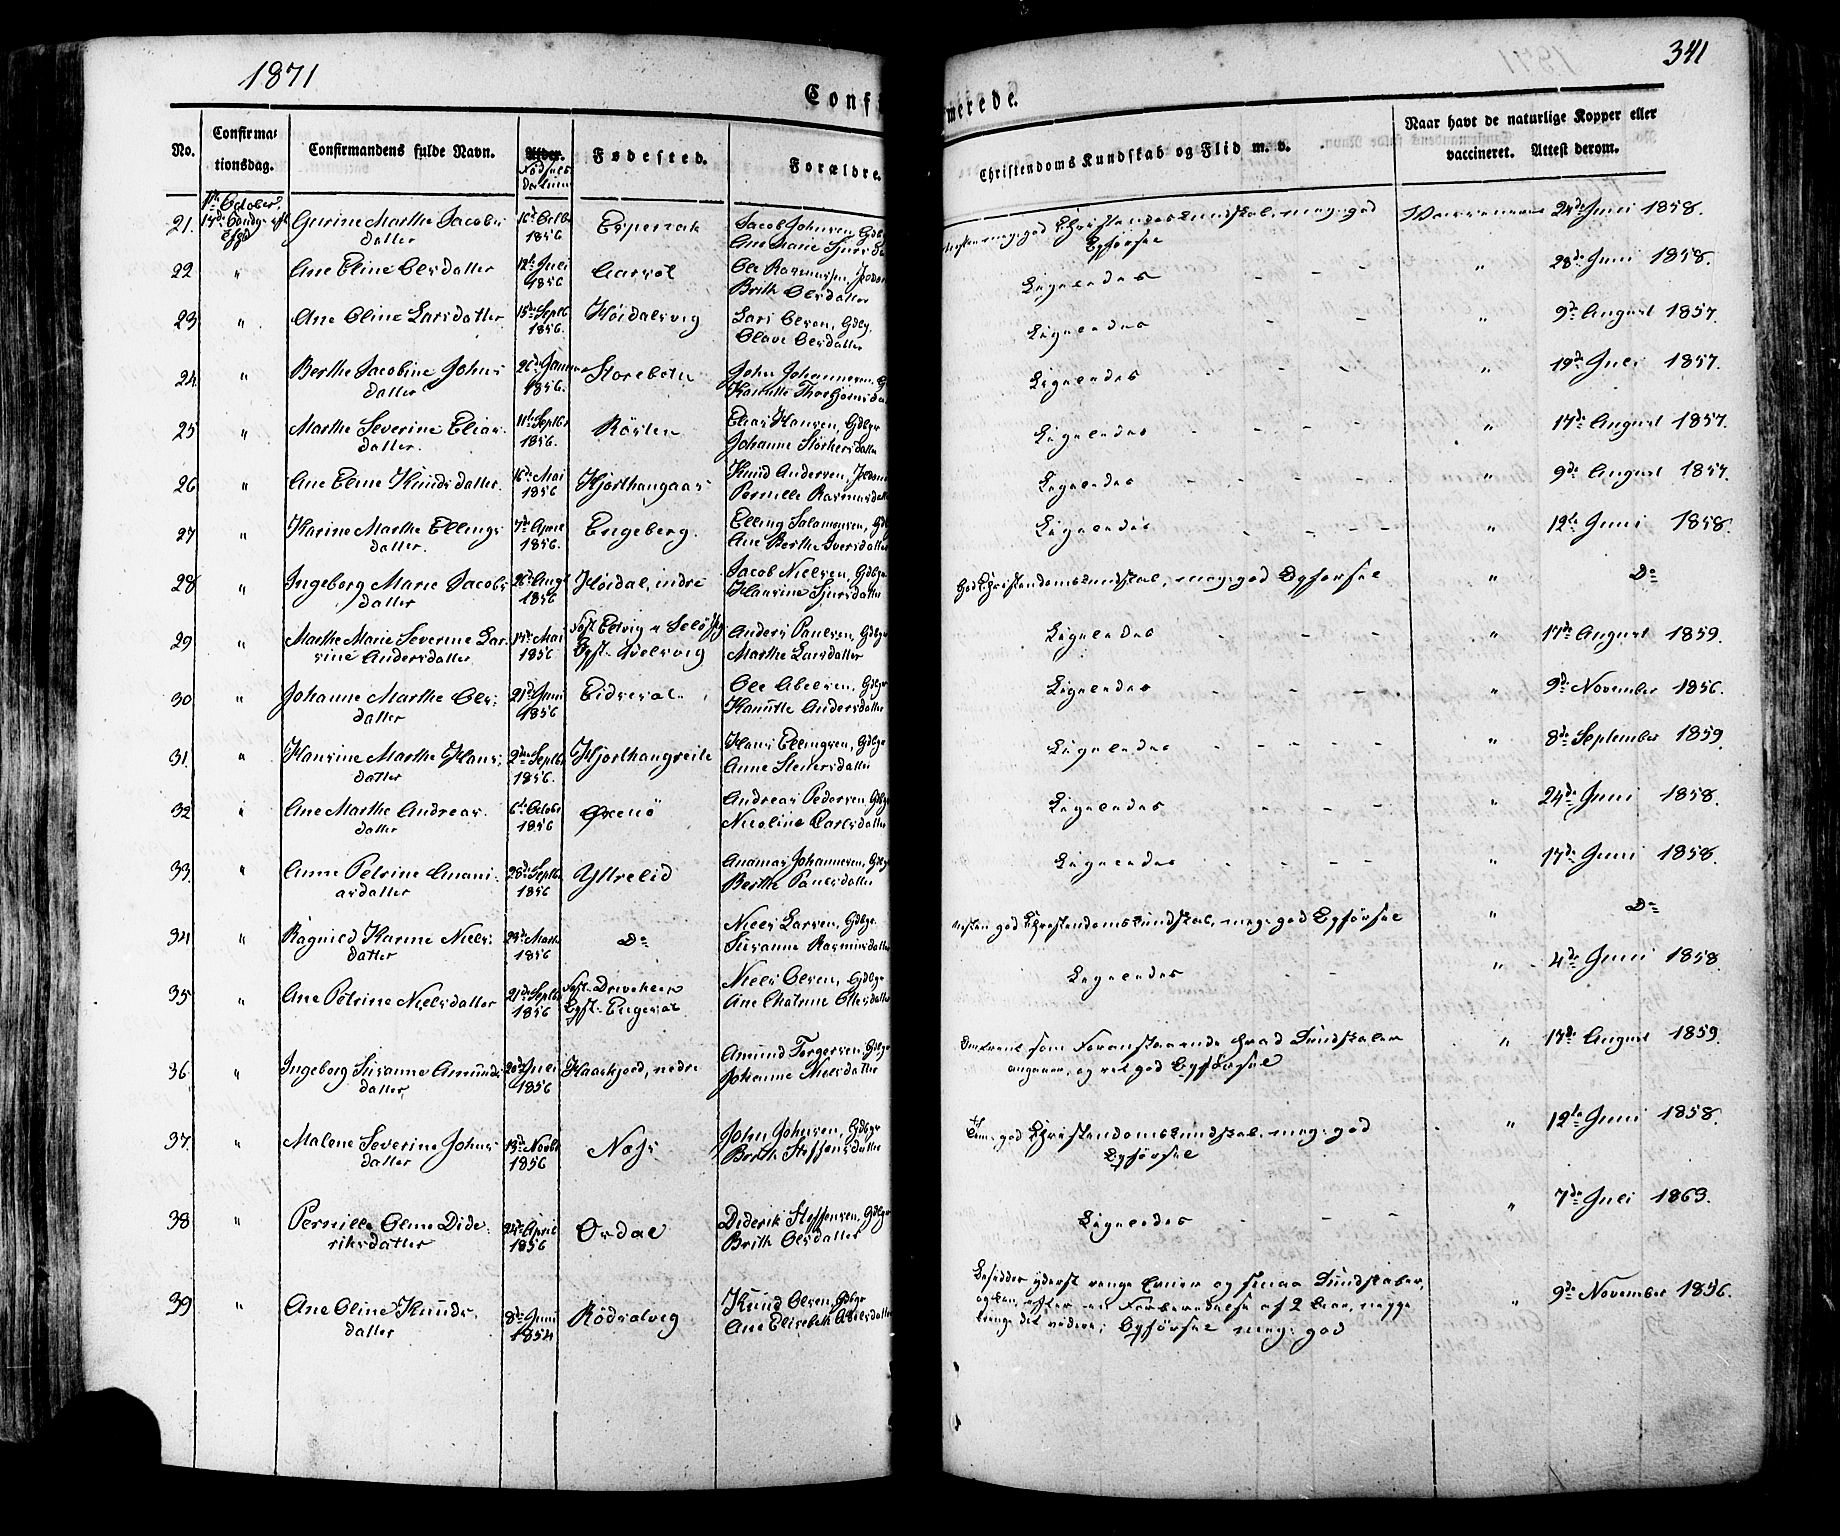 1871
341
Confi
merede.
No.
Confirma-
tionsdag.
Confirmandens fulde Navn.
Alder.
Fødested.
Forældre.
Christendoms Kundskab og Flid m. v.
Naar havt de naturlige Kopper eller
vaccineret. Attest derom.
21. Gurine Marthe Jacobs
datter 1856 Jacob Johnsen, Gdb
meg: god Christendomskundskab, meg: god
Opførsel
24de Juni 1858.
22 " Ane Eline Olsdatter 12te Juli
1856 Aarsöl Ole Rasmussen,
Brith Olsdatter
Ligeledes - - - " 28de Juni 1858.
23 " Ane Oline Larsdatter 15de Septb
1856. Höidalsvig Lars Olsen, Gdbg.
Olave Olsdatter
Ligeledes - - " 9de August 1857.
24 " Berthe Jacobine Johns
datter 26de Janu
1856. Storebotn John Johannesen, G
Ligeledes " 19de Juli 1857.
25 " Marthe Severine Elias
datter. 11te Septbr
1856. Elias Hansen, Gdbgr
Johanne
Ligeledes " 17de August 1857.
26 " Ane Eline Knudsdatter. 16de Mai
1856 Hjorthangaas Knud Andersen,
Pernille Rasmusdatt
Ligeledes " 9de August 1857.
27 " Karine Marthe Ellings
datter. 7de April
1856. Engeberg. Elling Salomonsen, Gdb
Ane Berthe Iversdatter
Ligeledes " 12te Juni 1858.
28 " Ingeborg Marie Jacobs
datter 26de Augt
1856 Höidal, indre Jacob Nielsen, Gdbgr
Hansine Sjursdatter
God Christendomskundskab, meg: god Opførsel " Do
29 " Marthe Marie Severine Lar-
sine Andersdatter Mai
1856 Anders Paulsen, Gdbgr
Marthe Larsdatter
Ligeledes " 17de August 1859.
30 " Johanne Marthe Ols-
datter 21de Juni
1856 Eidsvol Ole Abelsen, Gdbgr
Kanutte Andersdatter
Ligeledes " 9de November 1856.
31 " Hansine Marthe Hans-
datter 2den Septbr
1856. Hjorthangreite Hans Ellingsen, Gdbgr
Anne
Ligeledes " 8de September 1859.
32 " Ane Marthe Andreas-
datter 6te Octobr
1856 Oxenö Andreas Pedersen, Gdbg
Nicoline Carlsdatter
Ligeledes " 24de Juni 1858.
33. " Anne Petrine Anani-
asdatter 28de Septbr
1856 Yttrelid Ananias Johannesen, Gdbg
Berthe Paulsdatter
Ligeledes " 17de Juni 1858.
34 " Ragnild Karine Niels-
datter Marts
1856 Do Niels Larsen, Gdbg.
Susanne Rasmusdatter
Næsten god Christendomskundskab, meg: god Opførsel " Do
35 " Ane Petrine Nielsdatter 21de Septbr
1856 Niels Olsen, Gdbgr
Ligeledes - - " 4de Juni 1858.
36. " Ingeborg Susanne Amunds
datter, 20de Juli
1856 Haaskjold, nedre Amund Torgersen, Gdbgr
Johanne Nielsdatter
som Foranstaaende hvad Kundskaber
angaaer, og vel god Opførsel
" 17de August 1859.
37. " Malene Severine Johns
datter 13de Novbr
1856 John Johnsen, Gdbgr
Brith Steffensdatter
god Christendomskundskab, meg: god
Opførsel
" 12te Juni 1858.
38 " Pernille Oline Dide-
riksdatter 24de April
1856 Ordal Diderik Steffensen, Gdbgr
Brith Olsdatter
Ligeledes - - - " 7de Juli 1863.
39 " Ane Oline Knuds-
datter 8de Juni
1854 Rödsalvig Knud Olsen, Gdbgr
Ane Elisabeth Abelsdatter
Besidder yderst ringe Evner og smaa Kundskaber,
Forberedelse af 2 Aar,
Opførsel meg: god
" 9de November 1856.